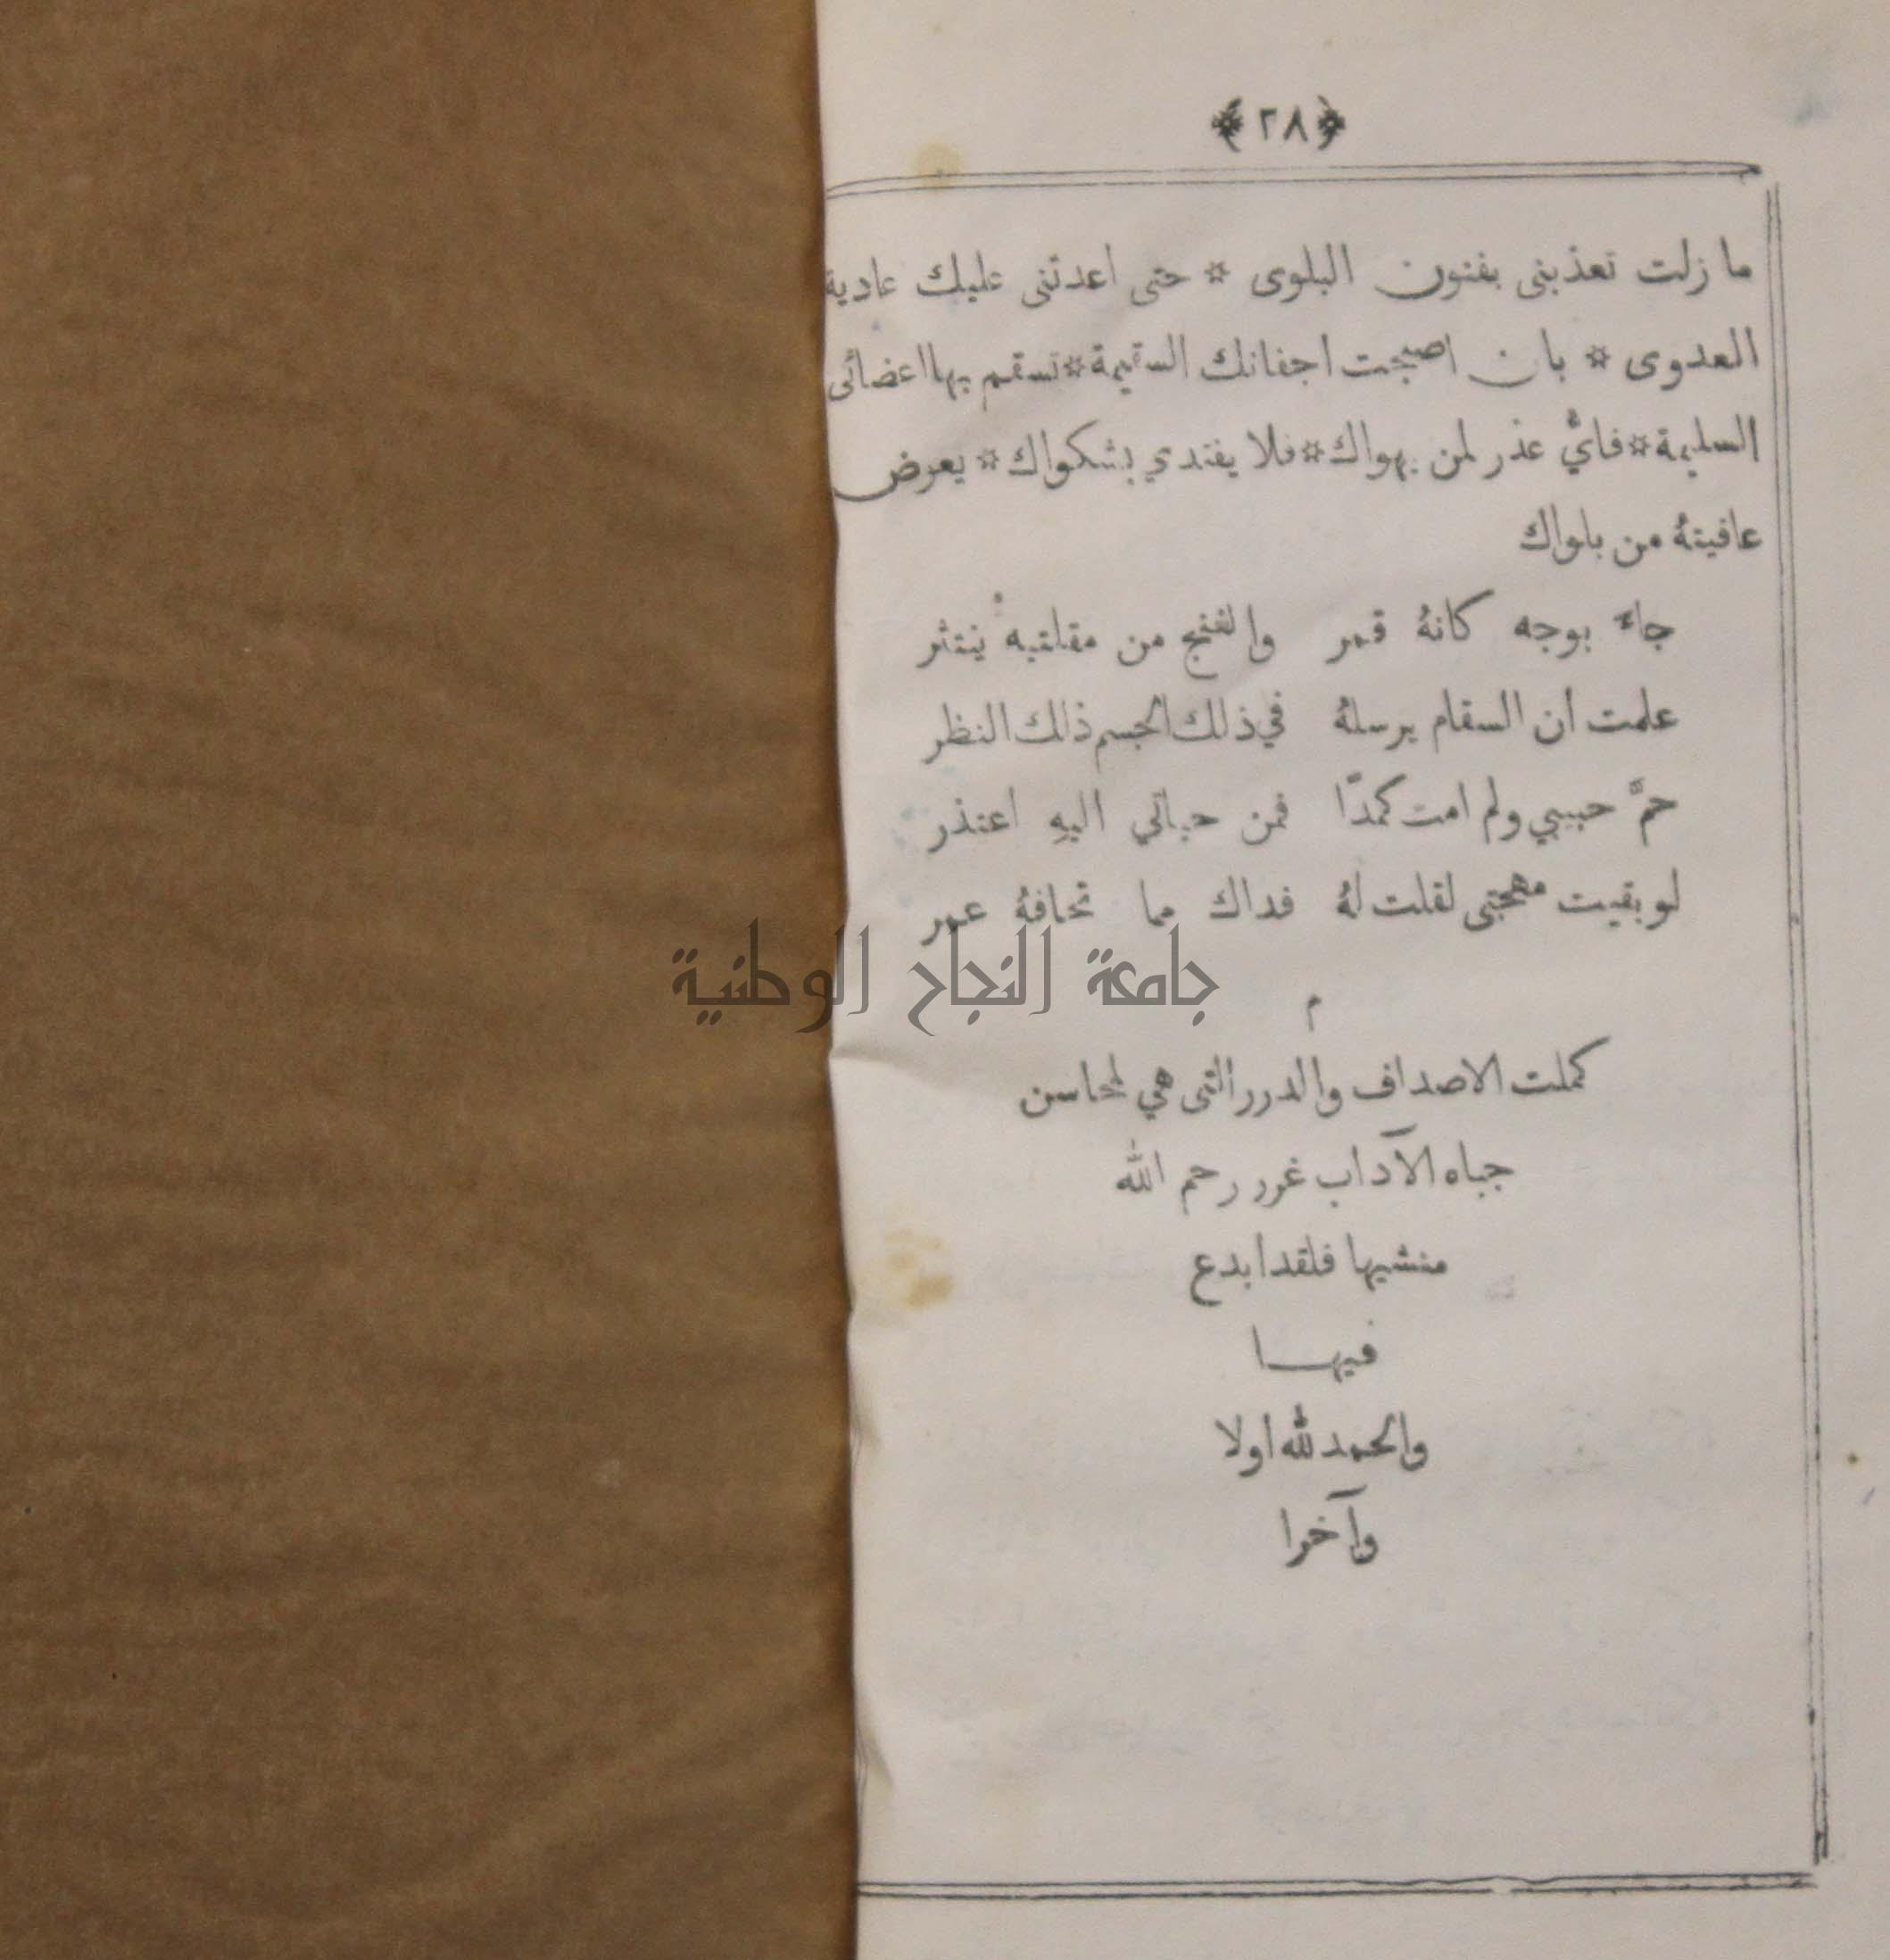 ﴿٢٨﴾
ما زلت تعذبنى بفنون البلوى * حتى اعدتنى عليك عادية
العدوى * بان اصبحت اجفانك السقيمة * تسقم بها اعضائى
السليمة * فايُّ عذر لمن يهواك * فلا يفتدي بشكواك * يعرض
عافيتهُ من بلواك
جاء بوجه كانهُ قمر والغنج من مقلتيه ينتثر
علمت ان السقام يرسلهُ في ذلك الجسم ذلك النظر
حمَّ حبيبي ولم امت كمدًا فمن حياتي اليهِ اعتذر
لو بقيت مهجتى لقلت لهُ فداك مما تخافهُ عمر
م
جامعة النجاح الوطنية
كملت الاصداف والدرر التى هي لمحاسن
جباه الآداب غرر رحم الله
منشيها فلقد ابدع
فيها
والحمد لله اولا
وآخرا